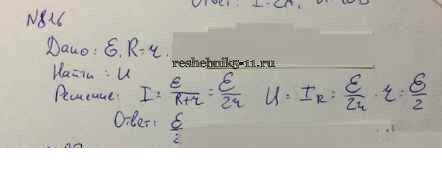 Ответ: I=2А, U=10В
N826
Дано: ℰ, R=r.
reshebniki-11.ru
Найти: U
Решение: I = ℰ/(R+r) = ℰ/2r U = IR = ℰ/2r · r = ℰ/2
Ответ: ℰ/2